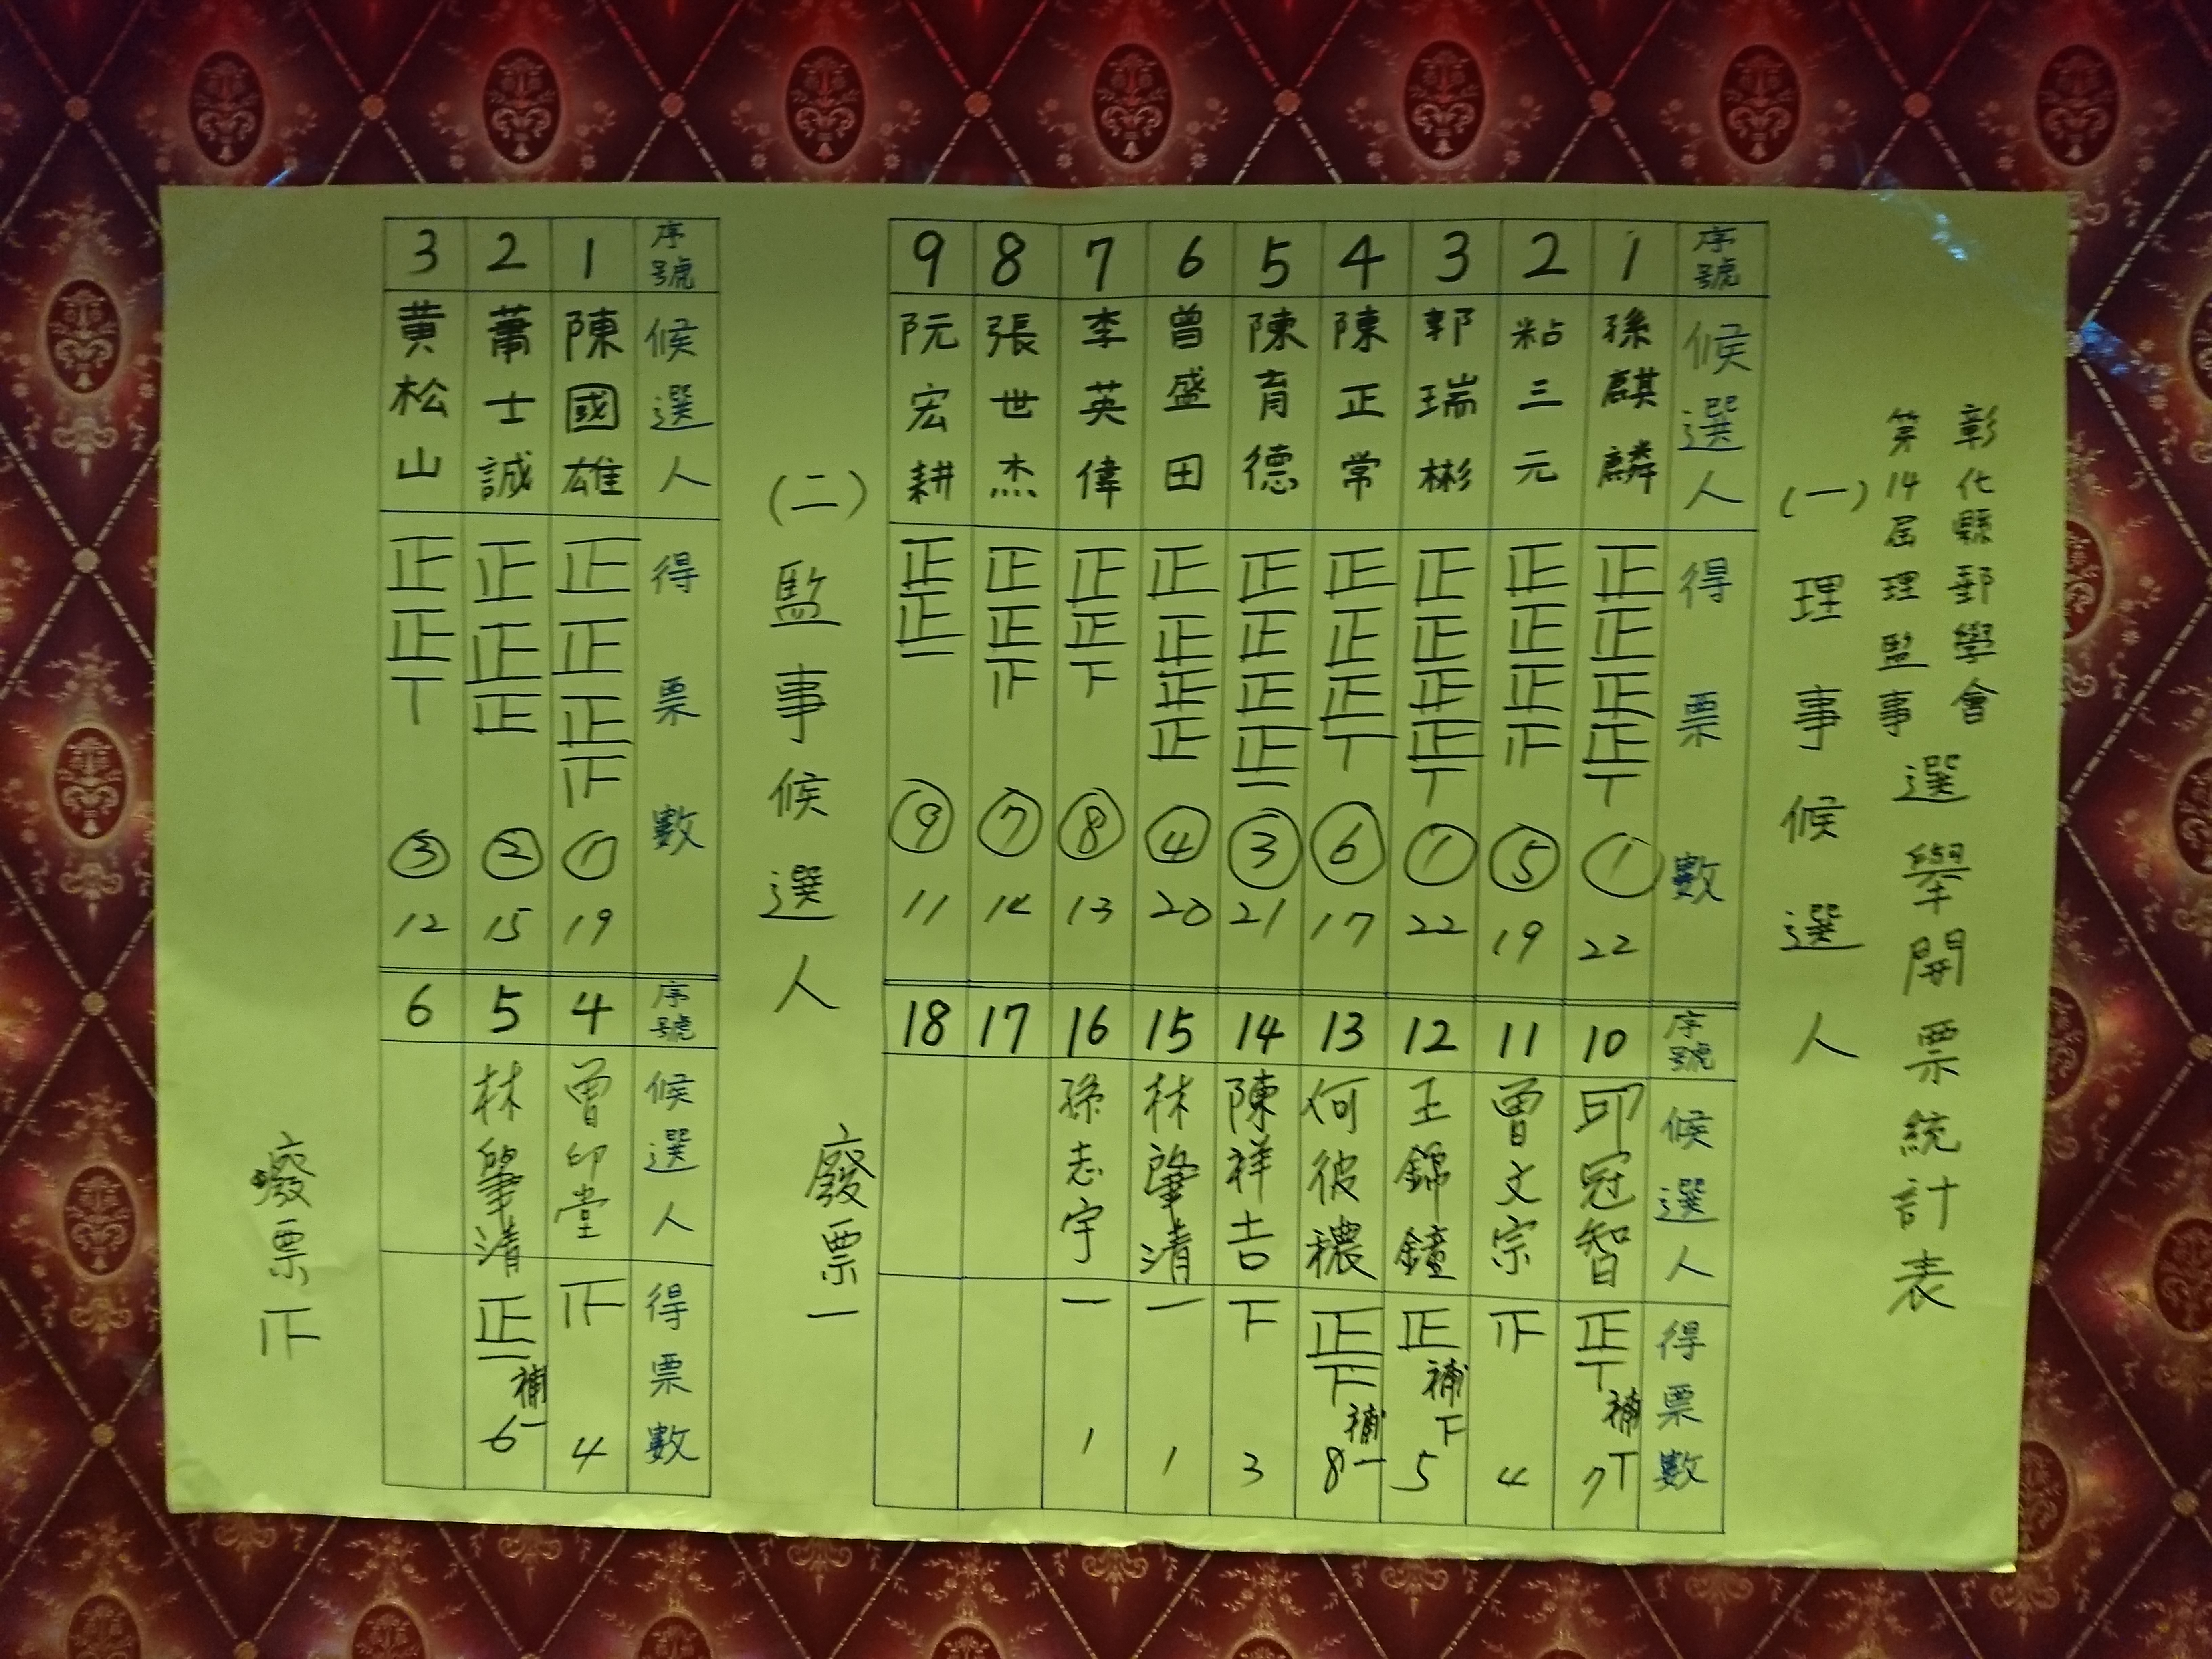 彰化縣郵學會
第14屆理監事
選舉開票統計表
(一)理事候選人
序號 候選人 得票數
1 孫麒麟 正正正正丅 ① 22
2 粘三元 正正正𤴓 ⑤ 19
3 郭瑞彬 正正正正丅 ① 22
4 陳正常 正正正丅 ⑥ 17
5 陳育德 正正正正一 ③ 21
6 曾盛田 正正正正 ④ 20
7 李英偉 正正下 ⑧ 13
8 張世杰 正正𤴓 ⑦ 14
9 阮宏耕 正正一 ⑨ 11
序號 候選人 得票數
10 邱冠智 正丅 補丅 7
11 曾文宗 𤴓 4
12 王錦鐘 正 補下 5
13 何彼穠 正下 補一 8
14 陳祥吉 下 3
15 林肇清 一 1
16 孫志宇 一 1
17
18
廢票一
(二)監事候選人
序號 候選人 得票數
1 陳國雄 正正正𤴓 ① 19
2 蕭士誠 正正正 ② 15
3 黄松山 正正丅 ③ 12
序號 候選人 得票數
4 曾印堂 𤴓 4
5 林肇清 正一 補一 6
6
廢票𤴓